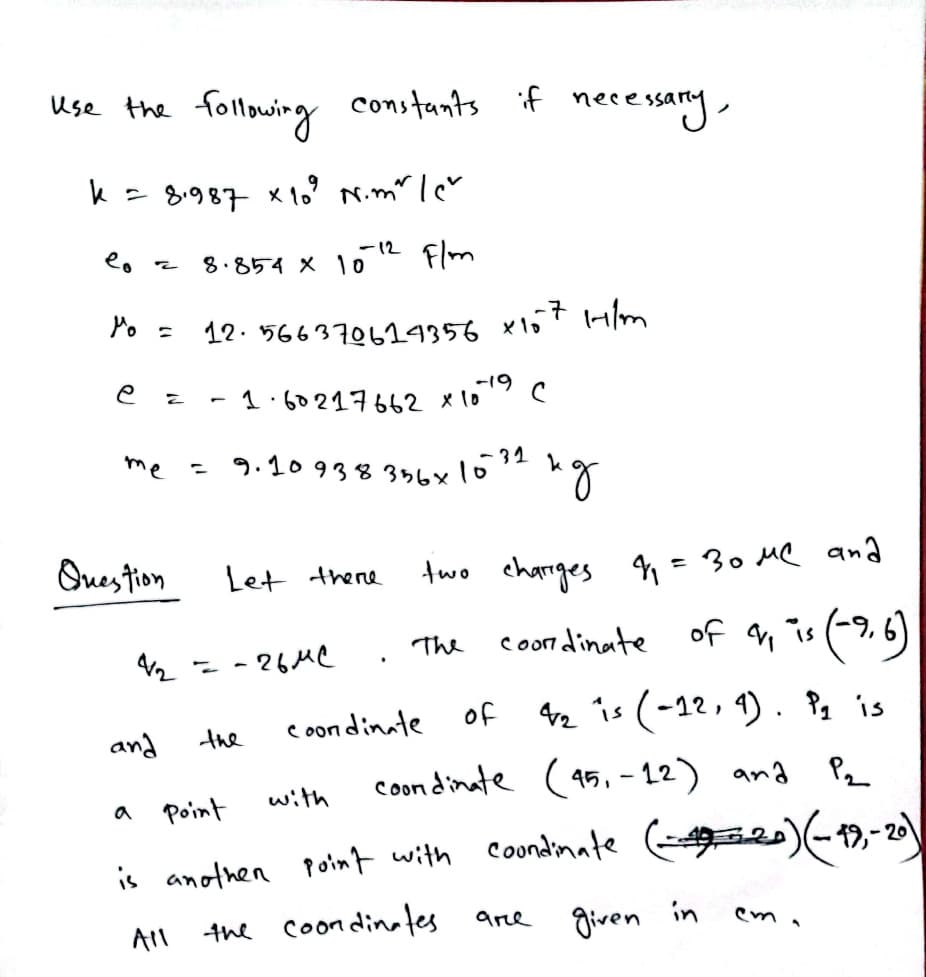 Use the following constants if necessary,
k = 8.987 × 10⁹ N.m² / c²
e₀ = 8.854 × 10⁻¹² F/m
μ₀ = 12.566370614356 × 10⁻⁷ H/m
e = - 1.60217662 × 10⁻¹⁹ C
me = 9.10938356 × 10⁻³¹ kg
Question Let there two charges q₁ = 30 μC and
q₂ = - 26 μC . The coordinate of q₁ is (-9, 6)
and the coordinate of q₂ is (-12, 4). P₁ is
a point with coordinate (45, -12) and P₂
is another point with coordinate (-49,-20)
All the coordinates are given in cm.